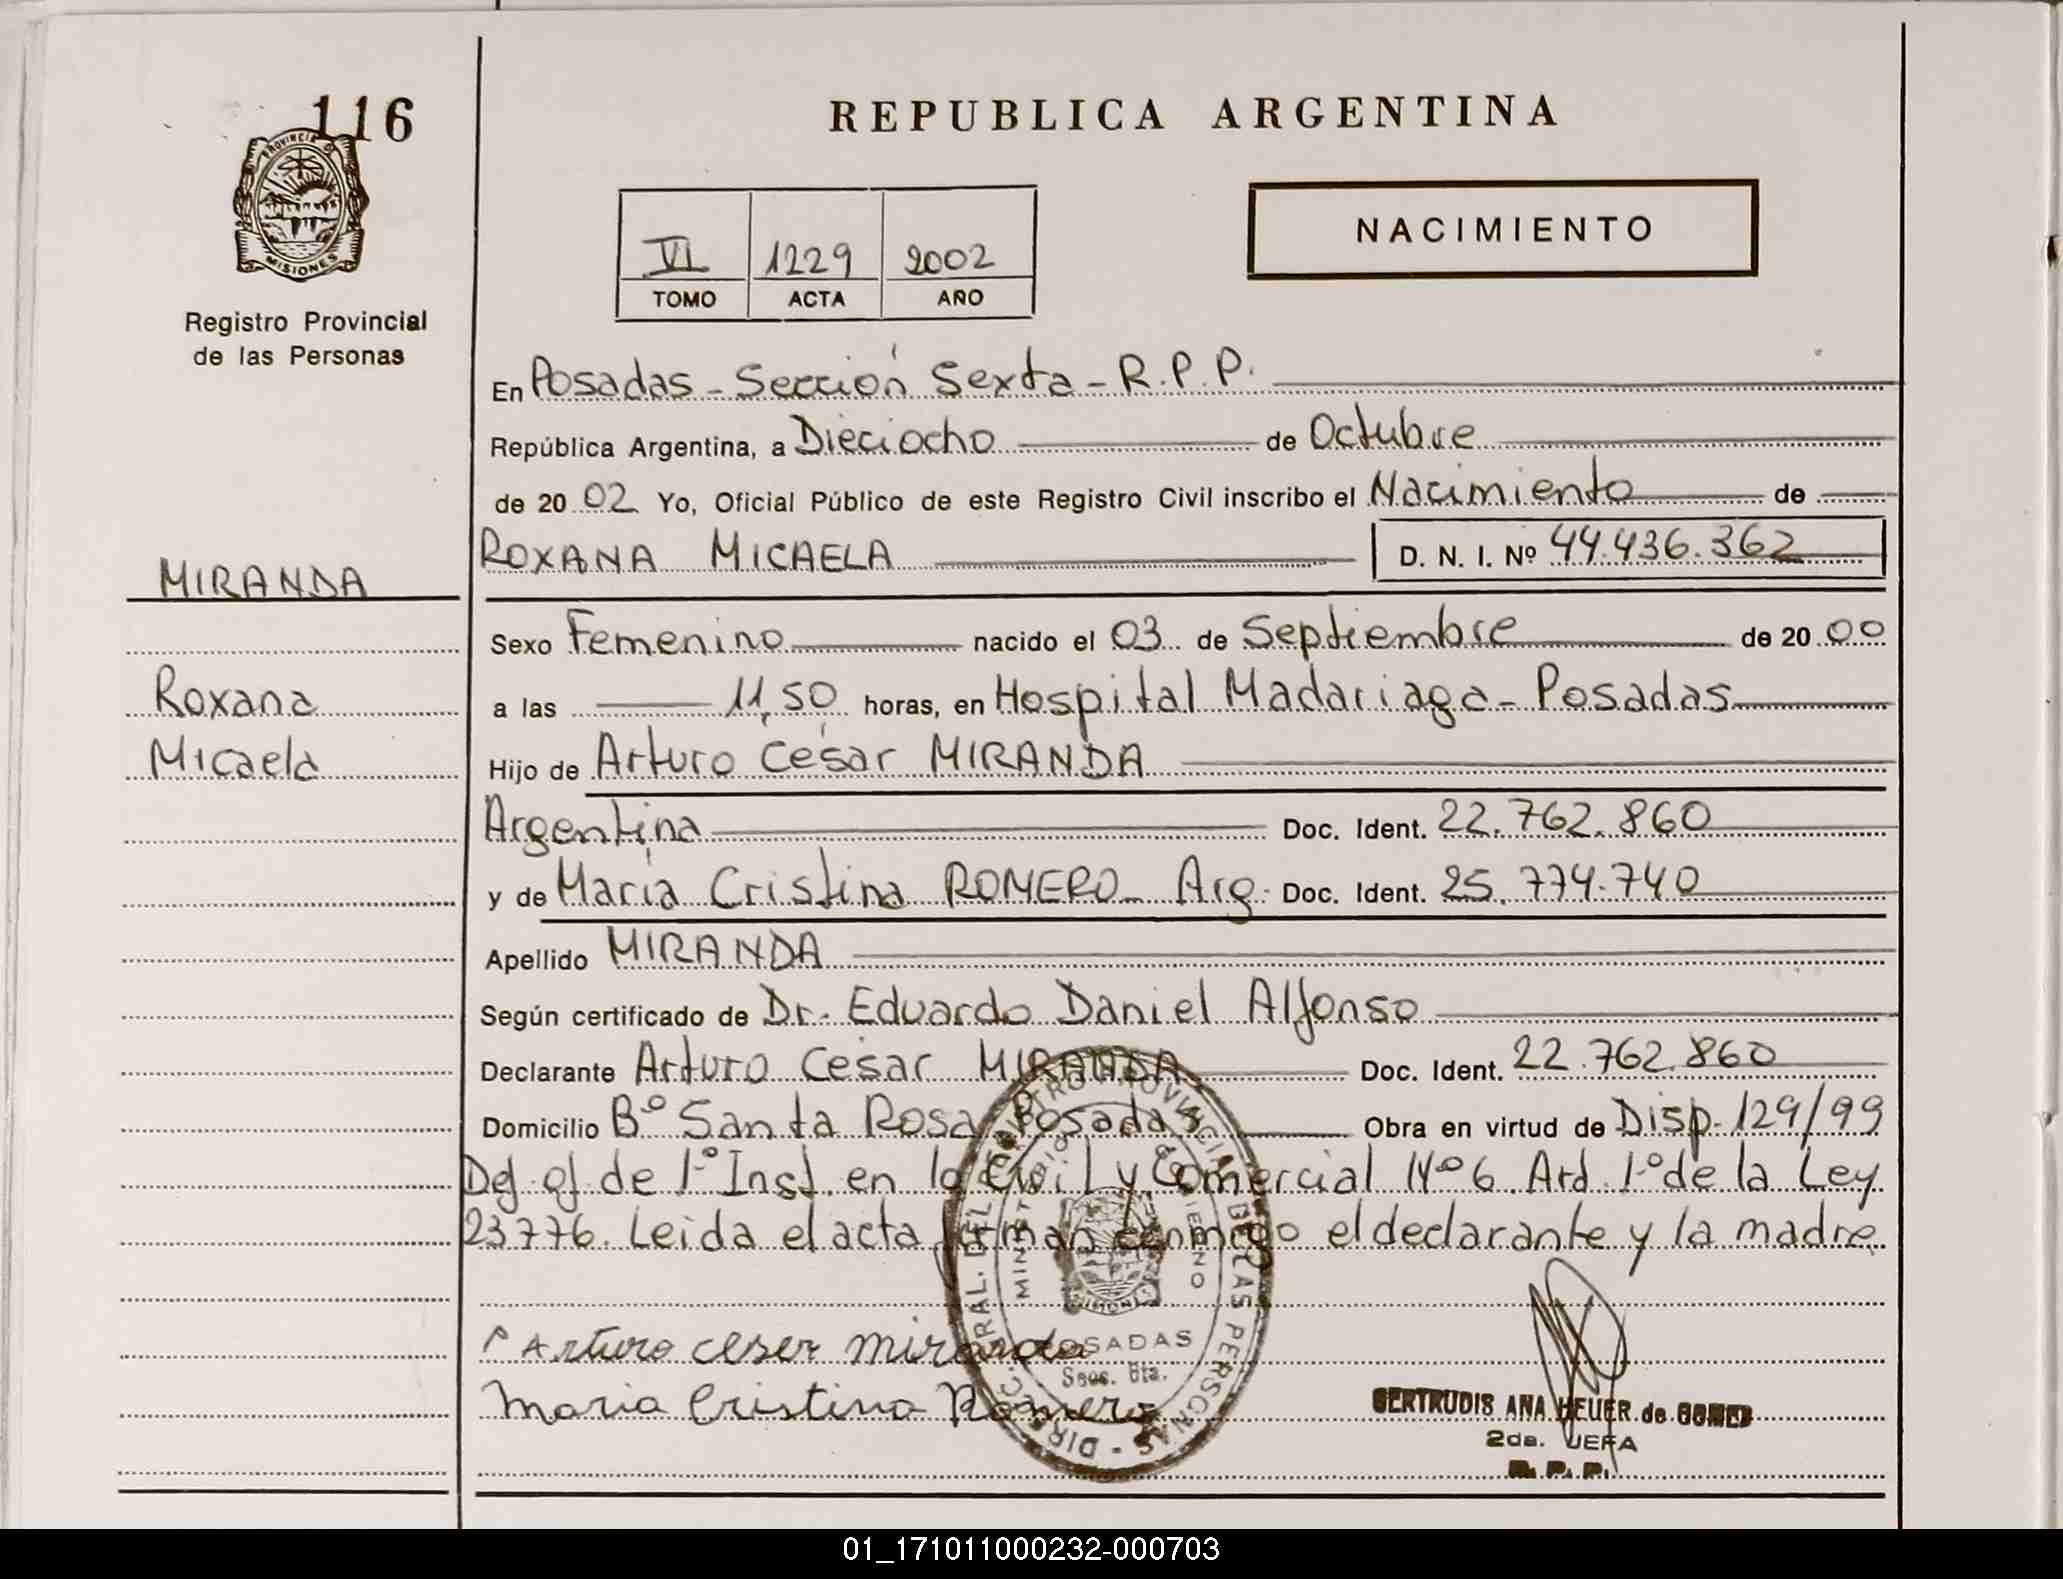 116
PROVINCIA DE
MISIONES
Registro Provincial
de las Personas
REPUBLICA ARGENTINA
NACIMIENTO
VI 1229 2002
TOMO ACTA AÑO
En Posadas - Sección Sexta - R.P.P.
República Argentina, a Dieciocho de Octubre
de 20 02 Yo, Oficial Público de este Registro Civil inscribo el Nacimiento de
ROXANA MICAELA D. N. I. Nº 44.436.362
MIRANDA
Roxana
Micaela
Sexo Femenino nacido el 03 de Septiembre de 20 00
a las 11,50 horas, en Hospital Madariaga - Posadas
Hijo de Arturo César MIRANDA
Argentina Doc. Ident. 22.762.860
y de María Cristina ROMERO - Arg. Doc. Ident. 25.774.740
Apellido MIRANDA
Según certificado de Dr. Eduardo Daniel Alfonso
Declarante Arturo César MIRANDA Doc. Ident. 22.762.860
Domicilio Bº Santa Rosa Posadas Obra en virtud de Disp. 129/99
Def. of. de 1º Inst. en lo Civil y Comercial Nº 6. Art. 1º de la Ley
23776. Leida el acta firman conmigo el declarante y la madre
Arturo ceser miranda
Maria Cristina Romero
DIREC. GRAL. DEL REGISTRO PROVINCIAL DE LAS PERSONAS
POSADAS
Secc. 6ta.
GERTRUDIS ANA HEUER de GOMEZ
2da. JEFA
R. P. P.
01_171011000232-000703